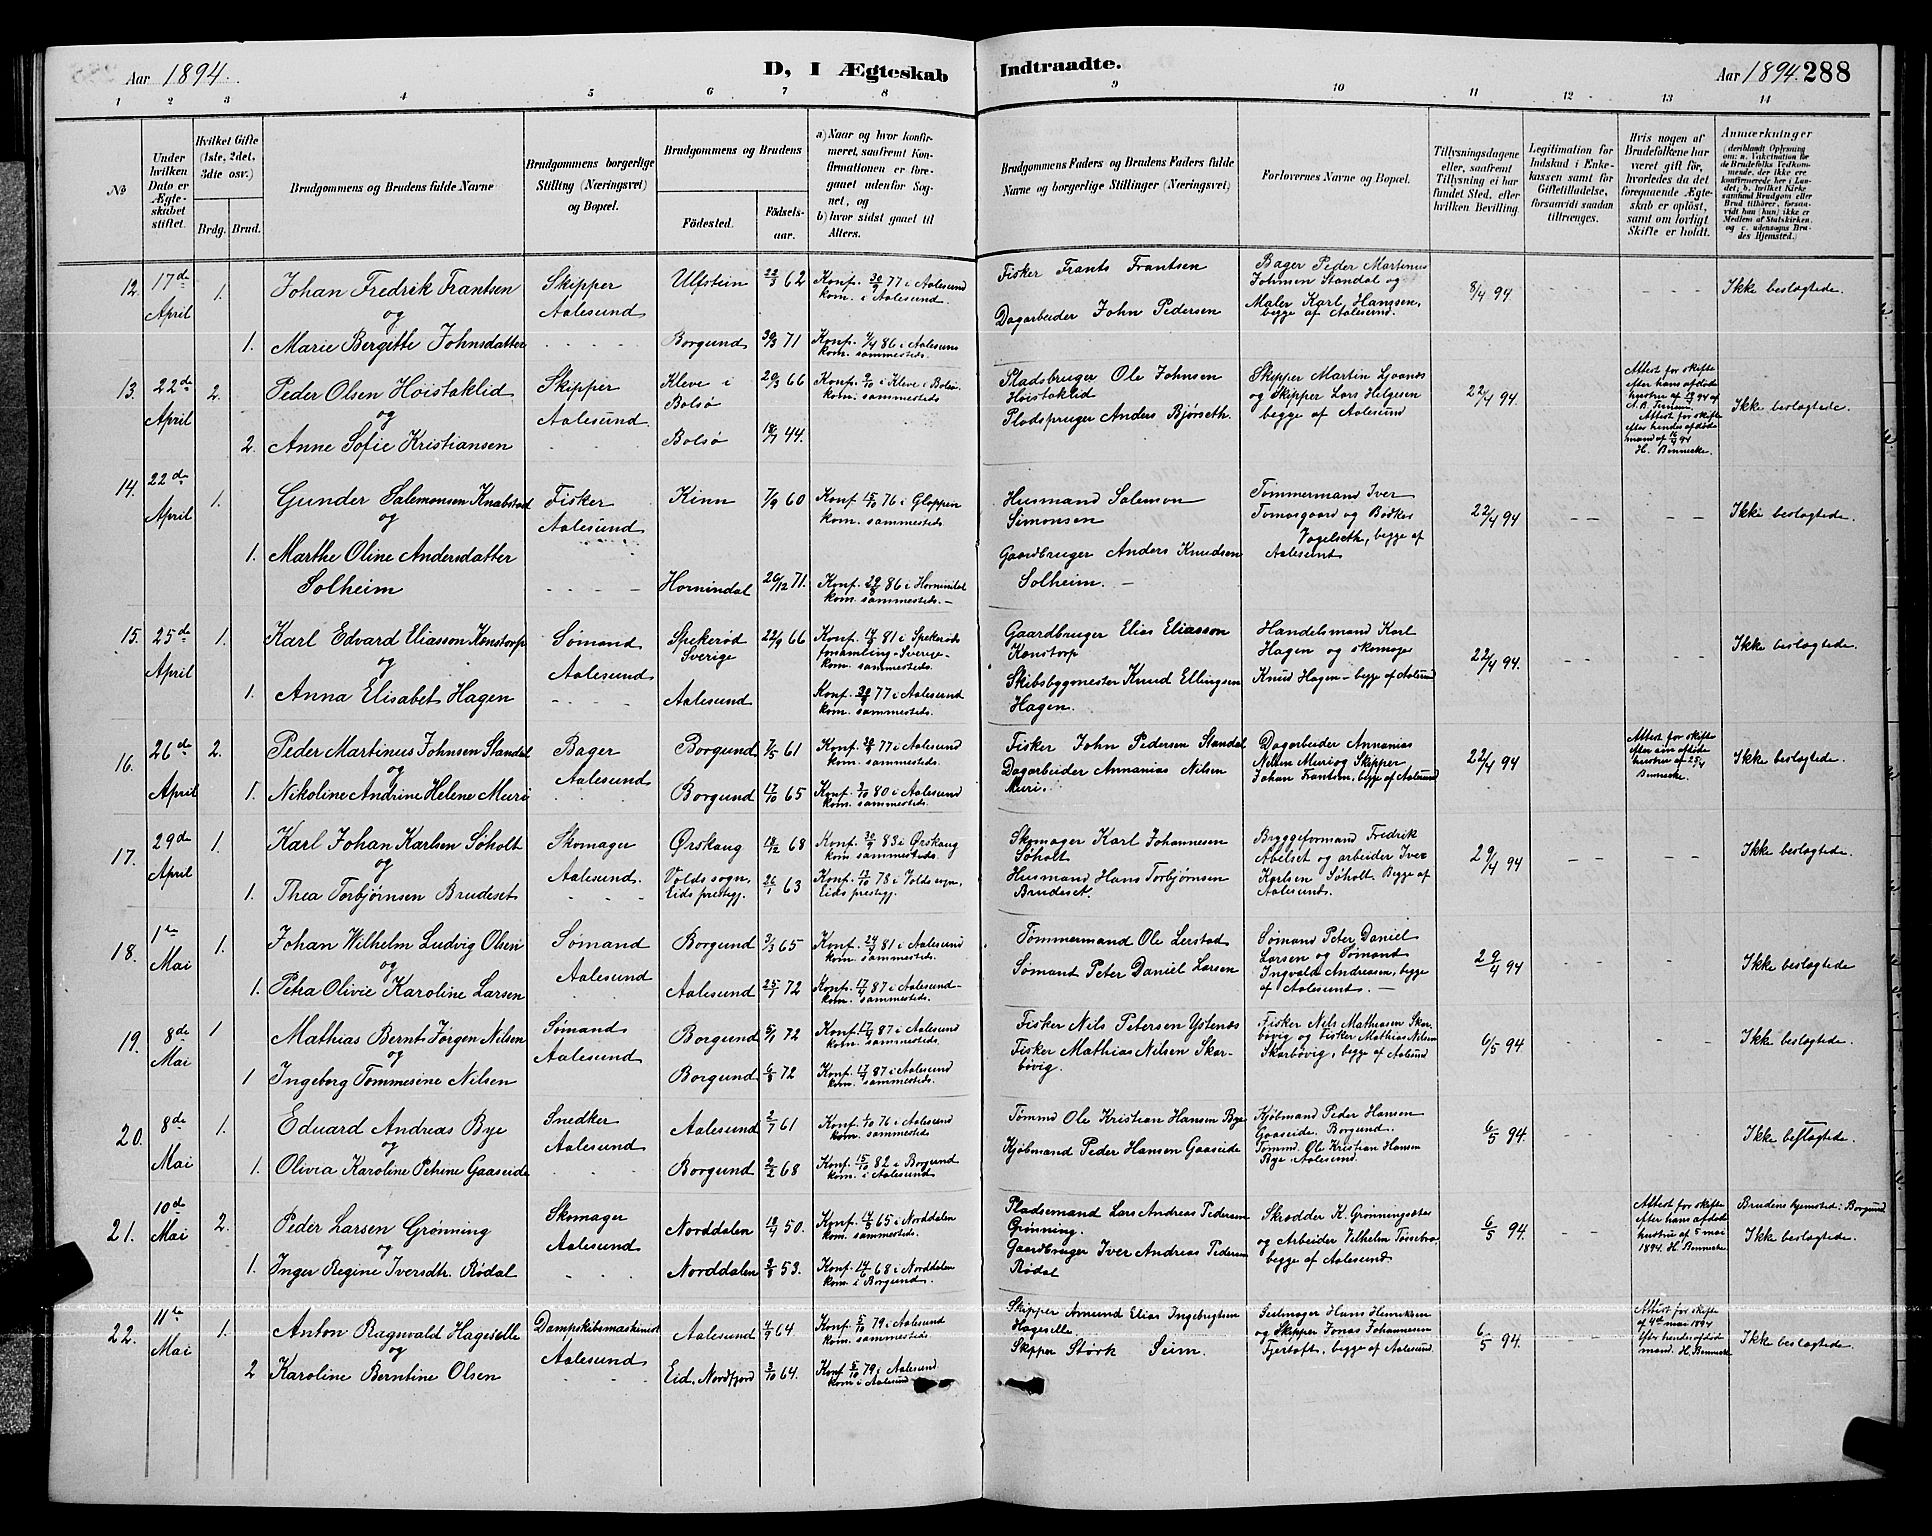 Aar 1894.
D, I Ægteskab Indtraadte.
Aar 1894. 288
1 2 3 4 5 6 7 8 9 10 11 12 13 14
No
Under hvilken Dato er Ægteskabet stiftet.
Hvilket Gifte (1ste, 2det, 3die osv.)
Brdg. Brud.
Brudgommens og Brudens fulde Navne
Brudgommens borgerlige Stilling (Næringsvei) og Bopæl.
Brudgommens og Brudens
Fødested.
Fødselsaar.
a) Naar og hvor konfirmeret, saafremt Konfirmationen er foregaaet udenfor Sognet, og
b) hvor sidst gaaet til Alters.
Brudgommens Faders og Brudens Faders fulde Navne og borgerlige Stillinger (Næringsvei)
Forlovernes Navne og Bopæl.
Tillysningsdagene eller, saafremt Tillysning ei har fundet Sted, efter hvilken Bevilling.
Legitimation for Indskud i Enkekassen samt for Giftetilladelse, forsaavidt saadan tiltrænges.
Hvis nogen af Brudefolkene har været gift før, hvorledes da det foregaaende Ægteskab er opløst, samt om lovligt Skifte er holdt.
Anmærkninger (deriblandt Oplysning om: a. Vakcination for de Brudefolks Vedkommende, der ikke ere konfirmerede her i Landet; b. hvilket Kirkesamfund Brudgom eller Brud tilhører, forsaavidt han (hun) ikke er Medlem af Statskirken, og c. udensogns Brudes Hjemsted.)
12. 17de April 1. Johan Fredrik Frantsen Skipper Aalesund Ulfstein 22/3 62 Konf. 30/9 77 i Aalesund kom. i Aalesund.
og
1. Marie Bergitte Johnsdatter Borgund 30/3 71 Konf. 4/4 86 i Aalesund kom. sammesteds.
Fisker Frants Frantsen
Dagarbeider John Pedersen
Bager Peder Martinus Johnsen Standal og Maler Karl Hanssen, begge af Aalesund.
8/4 94
Ikke beslægtede.
13. 22de April 2. Peder Olsen Hoistaklid Skipper Aalesund. Kleve i Bolsø 20/3 66 Konf. 2/10 i Kleve i Bolsø. kom. sammesteds
og
2. Anne Sofie Kristiansen Bolsø 18/7 44.
Pladsbruger Ole Johnsen Hoistaklid
Pladsbruger Anders Bjørseth.
Skipper Martin Lovnes og Skipper Lars Helgesen begge af Aalesund
22/4 94
Attest for skifte efter hans afdøde hustru af 94 af
Attest for skifte efter hendes afdøde mand af 16/4 94 H. Bennecke.
Ikke beslægtede.
14. 22de April 1. Gunder Salemonsen Knabstad Fisker Aalesund Kinn 7/9 60 Konf. 15/10 76 i Gloppen kom. sammesteds
og
1. Marthe Oline Andersdatter Solheim Hornindal 20/12 71. Konf. 29/8 86 i Hornindal kom. sammesteds.
Husmand Salemon Simonsen
Gaardbruger Anders Knudsen Solheim.
Tømmermand Iver Tomasgaard og Bødker Vogelseth, begge af Aalesund
22/4 94
Ikke beslægtede.
15. 25de April 1. Karl Edvard Eliasson Konstorp Sømand Aalesund Spekerød Sverige 22/9 66 Konf. 81 i Spekerøds forsamling Sverige. kom. sammesteds.
og
1. Anna Elisabet Hagen Aalesund Konf. 30/9 77 i Aalesund kom. sammesteds.
Gaardbruger Elias Eliasson Konstorp
Skibsbygmester Knud Ellingsen Hagen.
Handelsmand Karl Hagen og skomager Knud Hagen begge af Aalesund
22/4 94.
Ikke beslægtede.
16. 26de April 2. Peder Martinus Johnsen Standal Bager Aalesund Borgund 7/5 61 Konf. 30/9 77 i Aalesund kom. sammesteds.
og
1. Nikoline Andrine Helene Muri Borgund 17/10 65 Konf. 3/10 80 i Aalesund kom. sammesteds
Fisker John Pedersen Standal
Dagarbeider Annanias Nilsen Muri.
Dagarbeider Annanias Nilsen Muri og Skipper Johan Frantsen, begge af Aalesund
22/4 94
Attest for skifte efter sin afdøde hustru af 25/4 Bennecke.
Ikke beslægtede.
17. 29de April 1. Karl Johan Karlsen Søholt Skomager Aalesund. Ørskaug 18/12 68 Konf. 30/9 83 i Ørskaug kom. sammesteds.
og
1. Thea Torbjørnsen Brudeset Volds sogn, Eids prestegj. 26/1 63 Konf. 13/10 78 i Volds sogn, Eids prestegj.
Skomager Karl Johannesen Søholt
Husmand Hans Torbjørnsen Brudeset.
Bryggeformand Fredrik Abelset og arbeider Iver Karlsen Søholt. Begge af Aalesund.
29/4 94
Ikke beslægtede.
18. 1ste Mai 1. Johan Wilhelm Ludvig Olsen Sømand Aalesund Borgund 3/3 65 Konf. 24/4 81 i Aalesund kom. sammesteds.
og
1. Petra Olivie Karoline Larsen Aalesund 25/1 72 Konf. 17/4 87 i Aalesund kom. sammesteds.
Tømmermand Ole Lerstad
Sømand Peter Daniel Larsen
Sømand Peter Daniel Larsen og Sømand Ingvald Andreasen, begge af Aalesund.
29/4 94
Ikke beslægtede
19. 8de Mai 1 Mathias Bernt Jørgen Nilsen Sømand Aalesund Borgund 5/1 72 Konf. 17/4 87 i Aalesund kom. sammesteds.
og
1 Ingeborg Tommesine Nilsen Borgund 6/8 72 Konf. 17/4 87 i Aalesund kom. sammesteds.
Fisker Nils Petersen Ystenes
Fisker Mathias Nilsen Skarbøvig.
Fisker Nils Mathiasen Skarbøvig og Fisker Mathias Nilsen Skarbøvig, begge af Aalesund
6/5 94.
Ikke beslægtede.
20. 8de Mai 1. Eduard Andreas Bye Snedker Aalesund Aalesund 2/7 61 Konf. 1/10 76 i Aalesund kom. sammesteds
og
1. Olivia Karoline Petrine Gaaseide Borgund 2/2 68 Konf. 15/10 82 i Borgund kom. i Aalesund.
Tømmd Ole Kristian Hansen Bye
Kjøbmand Peder Hansen Gaaseide
Kjøbmand Peder Hansen Gaaseide, Borgund. Tømmd. Ole Kristian Hansen Bye, Aalesund.
6/5 94.
Ikke beslægtede.
21. 10de Mai 2. Peder Larsen Grønning Skomager Aalesund Norddalen 18/4 50. Konf. 65 i Norddalen kom. sammesteds.
og
1. Inger Regine Iversdtr. Rødal Norddalen 3/8 53. Konf. 14/6 68 i Norddalen kom. i Borgund.
Pladsemand Lars Andreas Pedersen Grønning.
Gaardbruger Iver Andreas Pedersen Rødal
Skrædder K. Grønningsæter og Arbeider Vilhelm Tøssebro, begge af Aalesund.
6/5 94.
Attest for skifte efter hans afdøde hustru af 5 mai 1894. H. Bennecke.
Brudens hjemsted: Borgund
Ikke beslægtede.
22. 11te Mai 1. Anton Ragnvald Hageselle Dampskibsmaskinist Aalesund Aalesund 4/9 64 Konf. 5/10 79 i Aalesund kom. sammesteds
og
2 Karoline Berntine Olsen Eid, Nordfjord 3/10 64. Konf. 5/10 79 i Aalesund kom i Aalesund
Skipper Amund Elias Ingebrigtsen Hageselle.
Skipper Størk Seim.
Seilmager Hans Henriksen og Skipper Jonas Johannesen Fjørtoft, begge af Aalesund.
6/5 94.
Attest for skifte af 4de mai 1894 efter hendes afdøde mand. H. Bennecke
Ikke beslægtede.